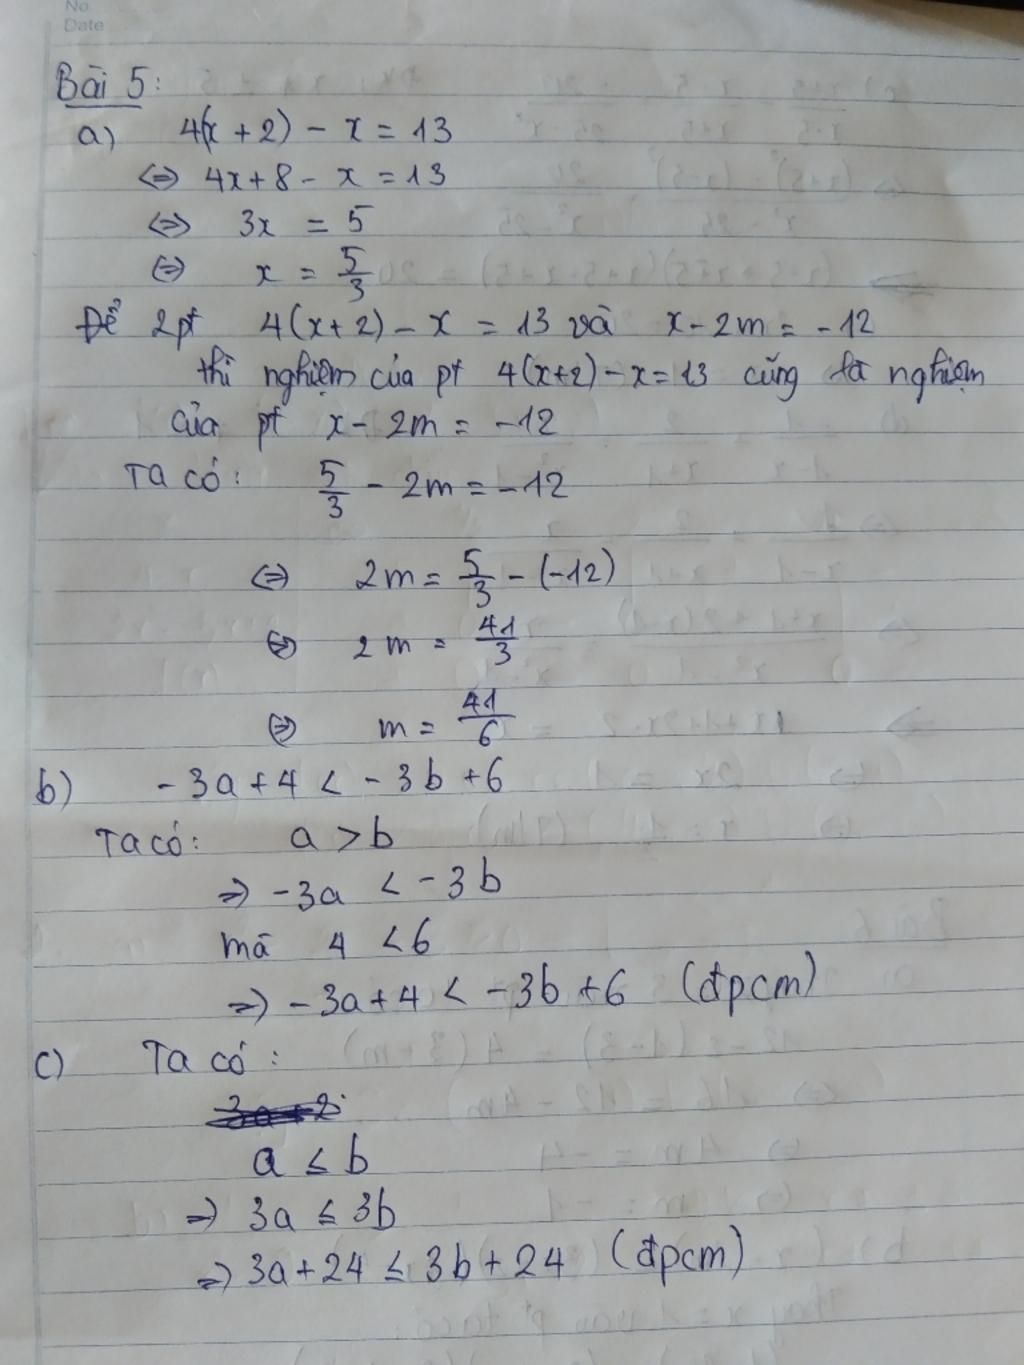 No
Date
Bài 5:
a) 4(x + 2) - x = 13
⇔ 4x + 8 - x = 13
⇔ 3x = 5
⇔ x = 5/3
Để 2 pt 4(x + 2) - x = 13 và x - 2m = -12
thì nghiệm của pt 4(x+2) - x = 13 cũng là nghiệm
của pt x - 2m = -12
Ta có: 5/3 - 2m = -12
⇔ 2m = 5/3 - (-12)
⇔ 2m = 41/3
⇔ m = 41/6
b) -3a + 4 < -3b + 6
Ta có: a > b
⇒ -3a < -3b
mà 4 < 6
⇒ -3a + 4 < -3b + 6 (đpcm)
c) Ta có:
a ≤ b
⇒ 3a ≤ 3b
⇒ 3a + 24 ≤ 3b + 24 (đpcm)